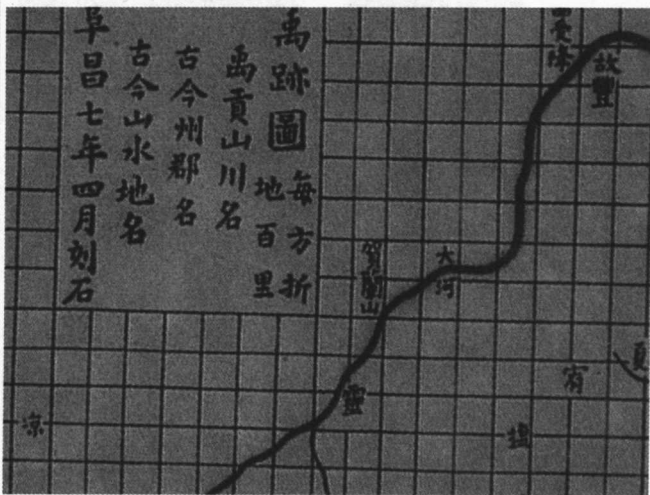 禹跡圖
每方折
地百里
禹貢山川名
古今州郡名
古今山水地名
阜昌七年四月刻石
受降
故豐
大河
賀蘭山
夏
宥
靈
鹽
涼